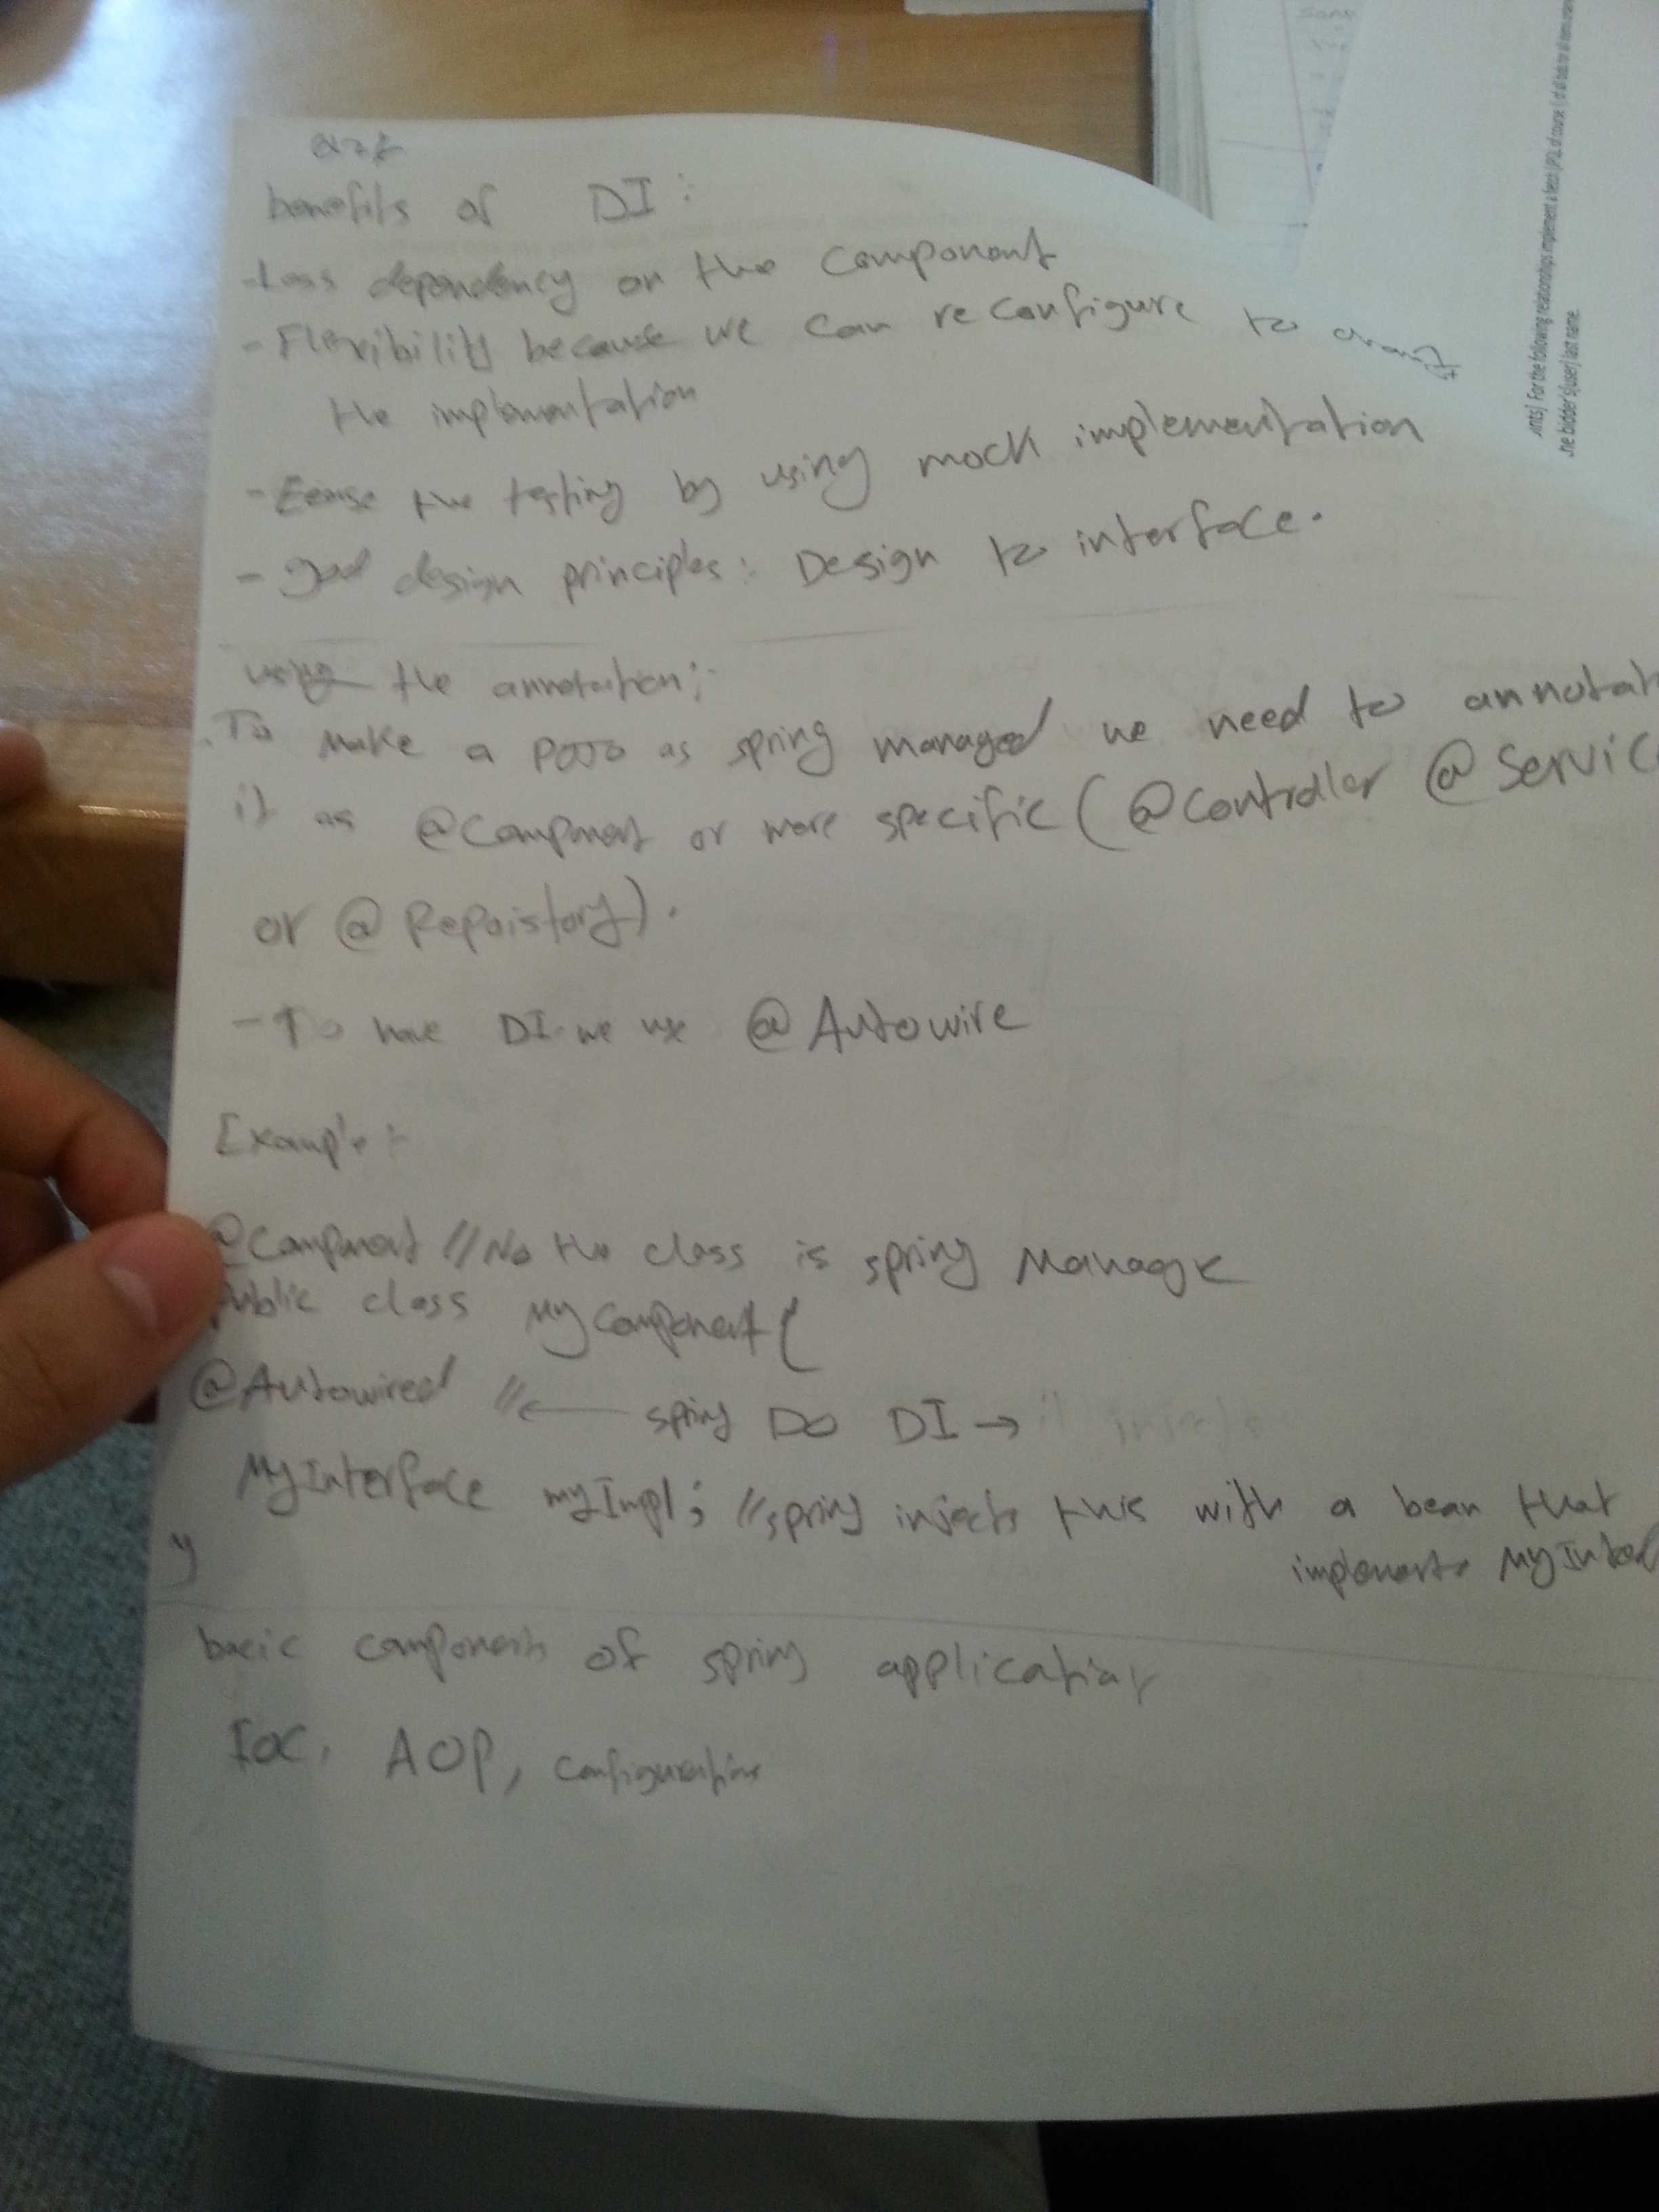 benefits of DI:
-Less dependency on the component
- Flexibility because we can reconfigure to
the implementation
- Eease the testing by using mock implementation
- good design principles: Design to interface.
using the annotation:
To make a POJO as spring managed we need to annotat
it as @Component or more specific (@Controller @Servic
or @Repoistory).
- To have DI we use @Autowire
Example:
@Component // No the class is spring Manage
public class MyComponent {
@Autowired // ← spring Do DI → it injects
MyInterface myImpl; // spring injects this with a bean that
implements MyInterf
}
basic components of spring application
IoC, AOP, configuration
ints] For the following relationships implement a fetch (JPQL of course
ne bidder's(user) last name.